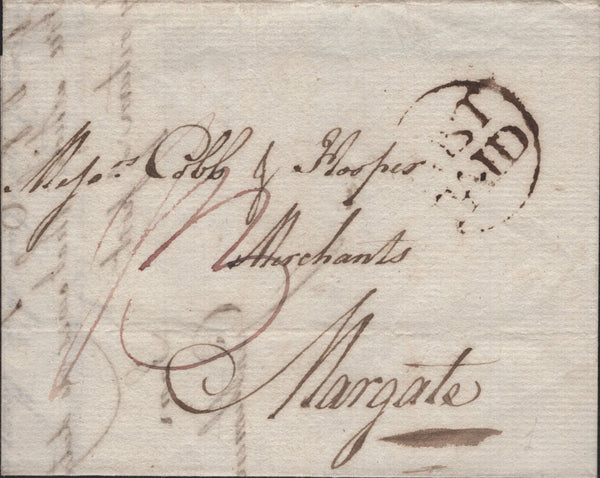 Messrs Cobb & Hooper
Merchants
Margate
POST
PAID